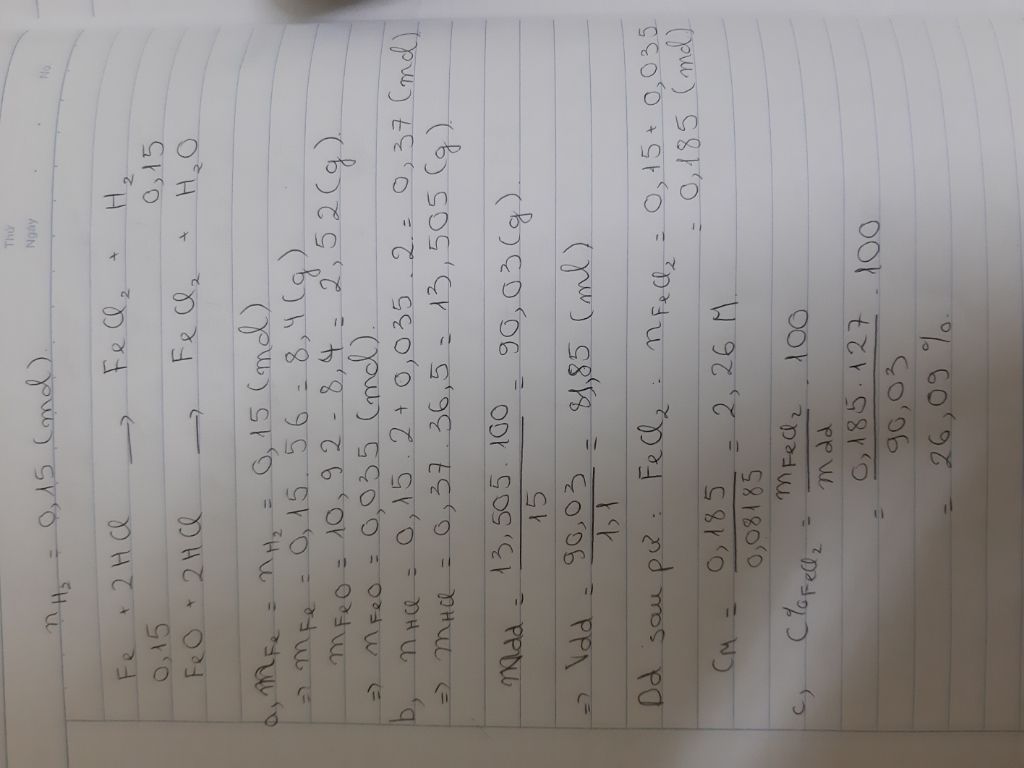 Thứ
Ngày
No
nH₂ = 0,15 (mol)
Fe + 2HCl → FeCl₂ + H₂
0,15 0,15
FeO + 2HCl → FeCl₂ + H₂O
a, mFe = nH₂ = 0,15 (mol)
=> mFe = 0,15 . 56 = 8,4 (g)
mFeO = 10,92 - 8,4 = 2,52 (g)
=> nFeO = 0,035 (mol)
b, nHCl = 0,15 . 2 + 0,035 . 2 = 0,37 (mol)
=> mHCl = 0,37 . 36,5 = 13,505 (g)
mdd = 13,505 . 100 / 15 = 90,03 (g)
=> Vdd = 90,03 / 1,1 = 81,85 (ml)
Dd sau pứ : FeCl₂ : nFeCl₂ = 0,15 + 0,035
= 0,185 (mol)
CM = 0,185 / 0,08185 = 2,26 M
c, C%FeCl₂ = mFeCl₂ / mdd . 100
= 0,185 . 127 / 90,03 . 100
= 26,09 %.